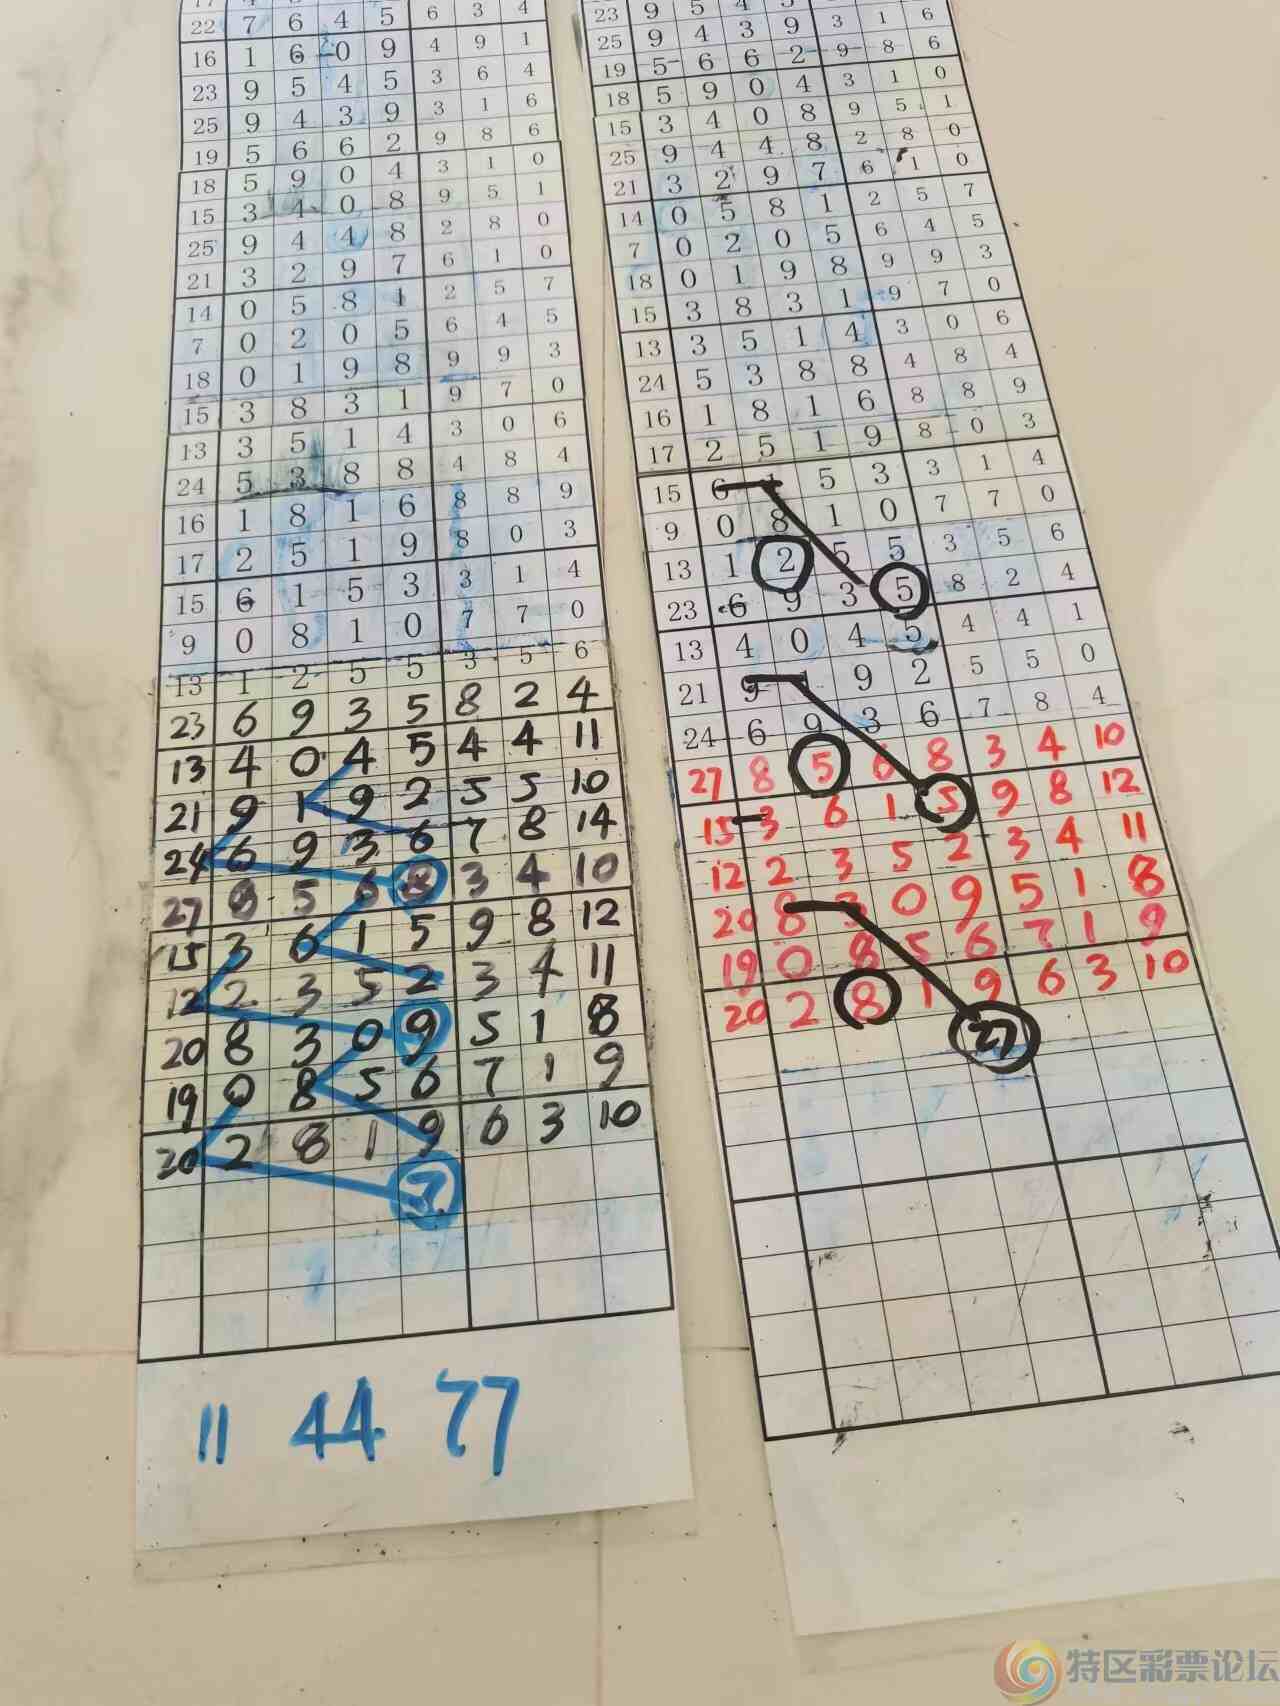 22 7 6 4 5 6 3 4
16 1 6 0 9 4 9 1
23 9 5 4 5 3 6 4
25 9 4 3 9 3 1 6
19 5 6 6 2 9 8 6
18 5 9 0 4 3 1 0
15 3 4 0 8 9 5 1
25 9 4 4 8 2 8 0
21 3 2 9 7 6 1 0
14 0 5 8 1 2 5 7
7 0 2 0 5 6 4 5
18 0 1 9 8 9 9 3
15 3 8 3 1 9 7 0
13 3 5 1 4 3 0 6
24 5 3 8 8 4 8 4
16 1 8 1 6 8 8 9
17 2 5 1 9 8 0 3
15 6 1 5 3 3 1 4
9 0 8 1 0 7 7 0
13 1 2 5 5 3 5 6
23 6 9 3 5 8 2 4
13 4 0 4 5 4 4 11
21 9 1 9 2 5 5 10
24 6 9 3 6 7 8 14
27 8 5 6 8 3 4 10
15 3 6 1 5 9 8 12
12 2 3 5 2 3 4 11
20 8 3 0 9 5 1 8
19 0 8 5 6 7 1 9
20 2 8 1 9 6 3 10
11 44 77
23 9 5 4 5 3 6
25 9 4 3 9 3 1 6
19 5 6 6 2 9 8 6
18 5 9 0 4 3 1 0
15 3 4 0 8 9 5 1
25 9 4 4 8 2 8 0
21 3 2 9 7 6 1 0
14 0 5 8 1 2 5 7
7 0 2 0 5 6 4 5
18 0 1 9 8 9 9 3
15 3 8 3 1 9 7 0
13 3 5 1 4 3 0 6
24 5 3 8 8 4 8 4
16 1 8 1 6 8 8 9
17 2 5 1 9 8 0 3
15 6 1 5 3 3 1 4
9 0 8 1 0 7 7 0
13 1 2 5 5 3 5 6
23 6 9 3 5 8 2 4
13 4 0 4 5 4 4 1
21 9 1 9 2 5 5 0
24 6 9 3 6 7 8 4
27 8 5 6 8 3 4 10
15 3 6 1 5 9 8 12
12 2 3 5 2 3 4 11
20 8 3 0 9 5 1 8
19 0 8 5 6 7 1 9
20 2 8 1 9 6 3 10
27
特区彩票论坛